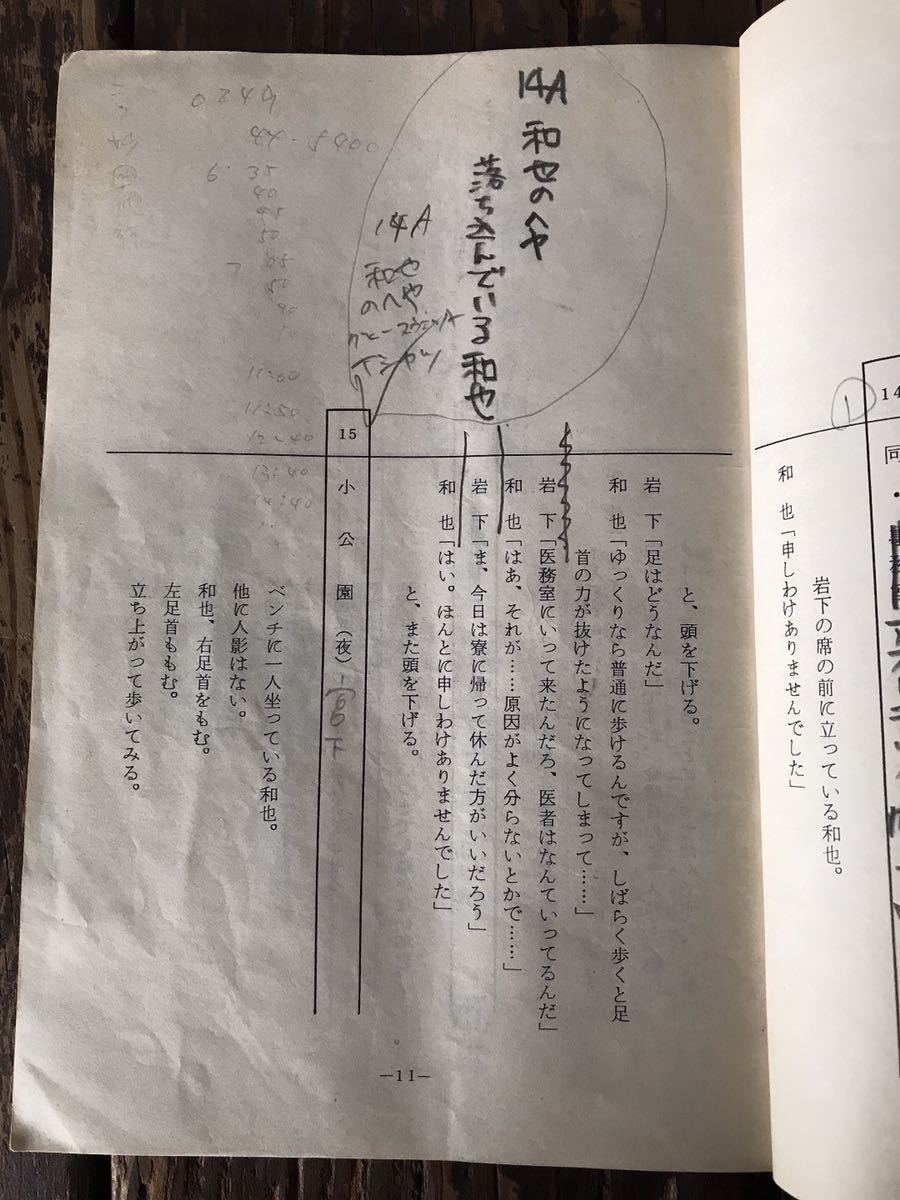 14
同・
①
岩下の席の前に立っている和也。
和　也「申しわけありませんでした」
と、頭を下げる。
岩　下「足はどうなんだ」
和　也「ゆっくりなら普通に歩けるんですが、しばらく歩くと足
首の力が抜けたようになってしまって……」
岩　下「医務室にいって来たんだろ、医者はなんていってるんだ」
和　也「はあ、それが……原因がよく分らないとかで……」
岩　下「ま、今日は寮に帰って休んだ方がいいだろう」
和　也「はい。ほんとに申しわけありませんでした」
と、また頭を下げる。
14A 和也のへや
落ち込んでいる和也
14A
和也
のへや
Tシャツ
15
小公園（夜）
ベンチに一人坐っている和也。
他に人影はない。
和也、右足首をもむ。
左足首ももむ。
立ち上がって歩いてみる。
6:35
40
45
50
11:00
11:50
12:40
13:40
14:40
—11—